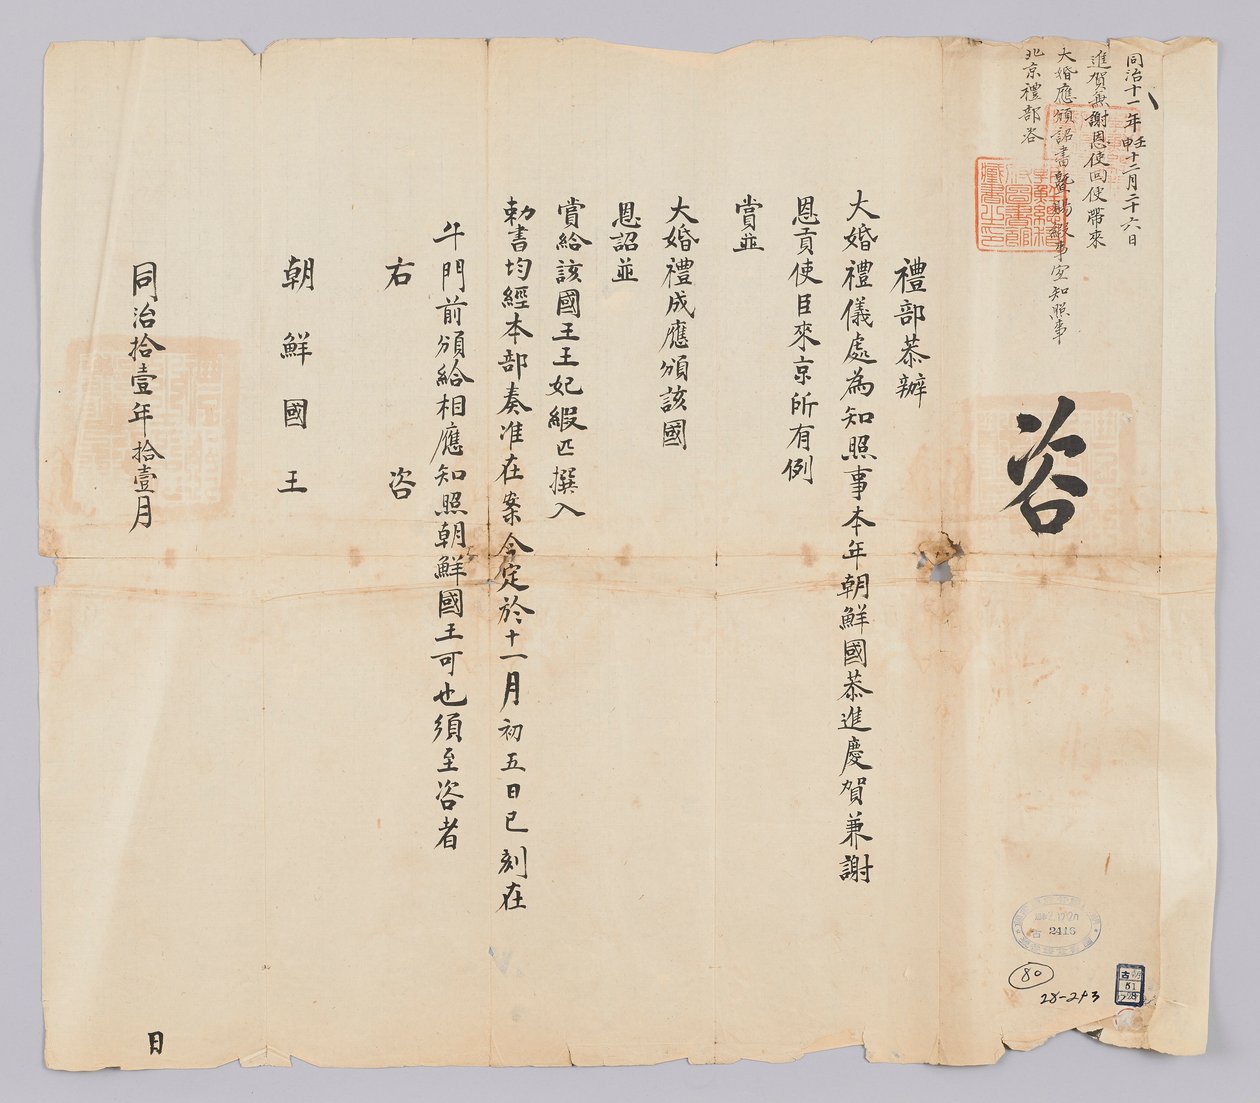 同治十一年壬申十二月二十六日
進賀兼謝恩使回使帶來
大婚應頒詔書暨賜緞事宜知照事
北京禮部咨
咨
禮部恭辦
大婚禮儀處為知照事本年朝鮮國恭進慶賀兼謝
恩貢使臣來京所有例
賞並
大婚禮成應頒該國
恩詔並
賞給該國王王妃緞匹撰入
勅書均經本部奏准在案今定於十一月初五日巳刻在
午門前頒給相應知照朝鮮國王可也須至咨者
右咨
朝鮮國王
同治拾壹年拾壹月
日
2416
80
28-213
古朝
51